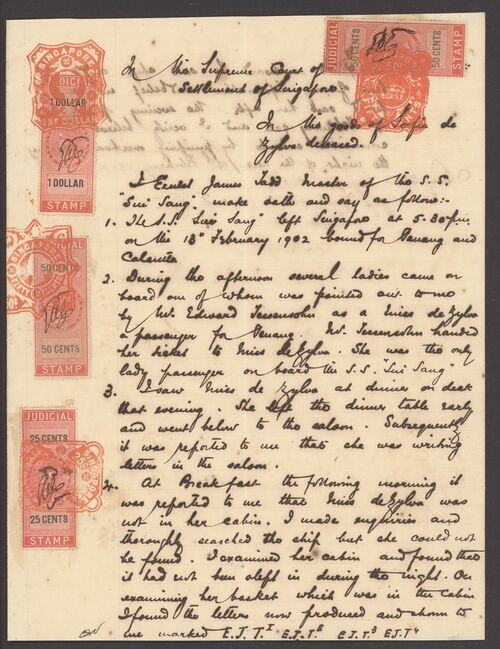 SINGAPORE
JUDICIAL
1 DOLLAR
ONE DOLLAR
1 DOLLAR
STAMP
JUDICIAL
50 CENTS
50 CENTS
STAMP
SINGAPORE
JUDICIAL
25 CENTS
25 CENTS
STAMP
50 CENTS
50 CENTS
STAMP
In the Supreme Court of
Settlement of Singapore
In the goods of Sofia de
Zylva deceased.
I Ernest James Tadd Master of the S.S.
"Sui Sang" make oath and say as follows:-
1. The S.S. "Sui Sang" left Singapore at 5-30 p.m.
on the 13th February 1902 bound for Penang and
Calcutta
2. During the afternoon several ladies came on
board one of whom was pointed out to me
by Mr. Edward Tessensohn as a Miss de Zylva
a passenger for Penang. Mr. Tessensohn handed
her ticket to Miss de Zylva. She was the only
lady passenger on board the S.S. "Sui Sang"
3. I saw Miss de Zylva at dinner on deck
that evening. She left the dinner table early
and went below to the saloon. Subsequently
it was reported to me that she was writing
letters in the saloon.
4. At Breakfast the following morning it
was reported to me that Miss de Zylva was
not in her cabin. I made enquiries and
thoroughly searched the ship but she could not
be found. I examined her cabin and found that
it had not been slept in during the night. On
examining her basket which was in the Cabin
I found the letters now produced and shown to
me marked E.J.T.1 E.J.T.2 E.J.T.3 E.J.T.4